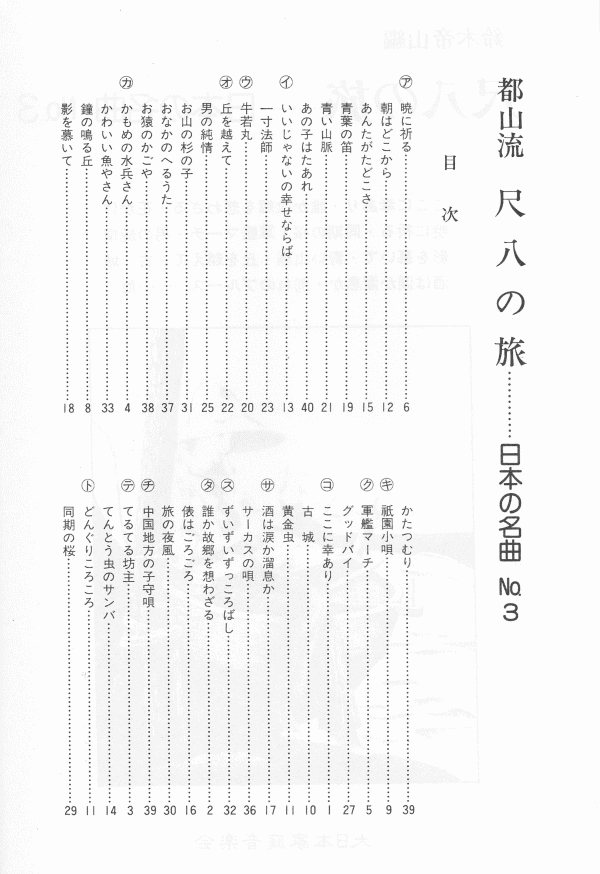 都山流 尺八の旅…………日本の名曲 No.3
目次
㋐ 暁に祈る 6
朝はどこから 12
あんたがたどこさ 15
青葉の笛 19
青い山脈 21
あの子はたあれ 40
㋑ いいじゃないの幸せならば 13
一寸法師 23
㋒ 牛若丸 20
㋔ 丘を越えて 22
男の純情 25
お山の杉の子 31
おなかのへるうた 37
お猿のかごや 38
㋕ かもめの水兵さん 4
かわいい魚やさん 33
鐘の鳴る丘 8
影を慕いて 18
かたつむり 39
㋖ 祇園小唄 9
㋗ 軍艦マーチ 5
グッドバイ 27
㋙ ここに幸あり 1
古城 10
黄金虫 11
㋚ 酒は涙か溜息か 17
サーカスの唄 36
㋜ ずいずいずっころばし 32
㋟ 誰か故郷を想わざる 2
俵はごろごろ 16
旅の夜風 30
㋠ 中国地方の子守唄 39
㋢ てるてる坊主 3
てんとう虫のサンバ 14
㋣ どんぐりころころ 11
同期の桜 29